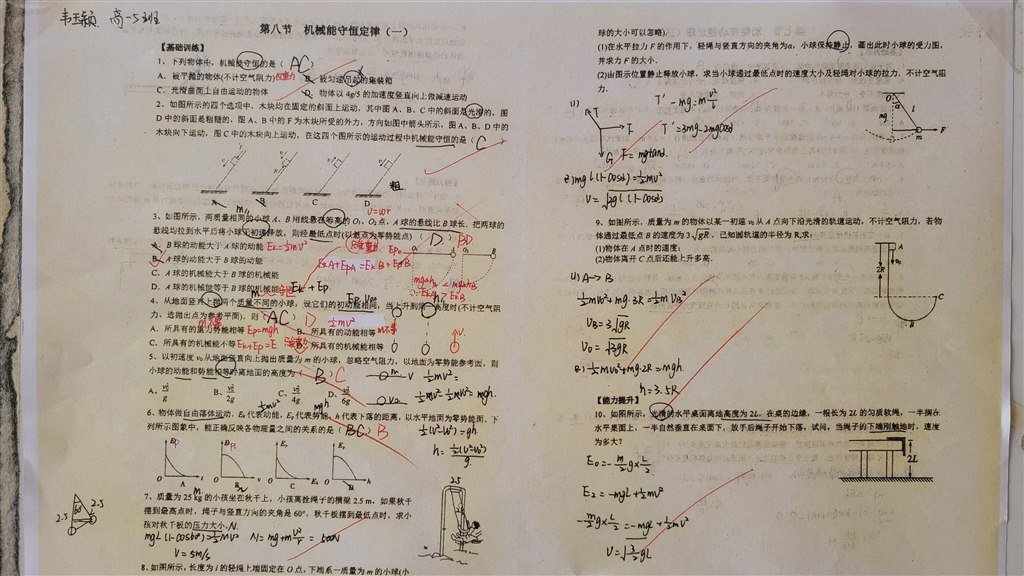 韦玉颖 高一5班
第八节 机械能守恒定律（一）
【基础训练】
1、下列物体中，机械能守恒的是（ AC ）
A．被平抛的物体(不计空气阻力) B．被匀速吊起的集装箱
C．光滑曲面上自由运动的物体 D．物体以4g/5的加速度竖直向上做减速运动
2、如图所示的四个选项中，木块均在固定的斜面上运动，其中图A、B、C中的斜面是光滑的，图
D中的斜面是粗糙的，图A、B中的F为木块所受的外力，方向如图中箭头所示，图A、B、D中的
木块向下运动，图C中的木块向上运动，在这四个图所示的运动过程中机械能守恒的是（ C ）
A B C D 粗
3、如图所示，两质量相同的小球A、B用线悬在等高的O₁、O₂点，A球的悬线比B球长．把两球的
悬线均拉到水平后将小球无初速释放，则经最低点时(以悬点为零势能点)（ D ）BD
A．B球的动能大于A球的动能 Ek=½mv²
B．A球的动能大于B球的动能 EkA+EpA=EkB+EpB
C．A球的机械能大于B球的机械能
D．A球的机械能等于B球的机械能 Ek+Ep
4、从地面竖直上抛两个质量不同的小球，设它们的初动能相同，当上升到同一高度时(不计空气阻
力，选抛出点为参考平面)．则（ AC ）D ½mv²
A．所具有的重力势能相等 Ep=mgh B．所具有的动能相等
C．所具有的机械能不等 Ek+Ep=E D．所具有的机械能相等
5、以初速度v₀从地面竖直向上抛出质量为m的小球，忽略空气阻力，以地面为零势能参考面，则
小球的动能和势能相等时离地面的高度为（ B ）C
A．v₀²/g B．v₀²/2g C．v₀²/4g D．v₀²/6g
½mv²-½mv²=mgh
½(v²-v²)=gh
6、物体做自由落体运动，Eₖ代表动能，Eₚ代表势能，h代表下落的距离，以水平地面为零势能面．下
列所示图象中，能正确反映各物理量之间的关系的是（ BC ）B
A B C D
7、质量为25 kg的小孩坐在秋千上，小孩离拴绳子的横梁2.5 m，如果秋千
摆到最高点时，绳子与竖直方向的夹角是60°，秋千板摆到最低点时，求小
孩对秋千板的压力大小．
mgL(1-cos60°)=½mv² N=mg+mv²/r=500N
v=5m/s
2.5 2.5
8、如图所示，长度为l的轻绳上端固定在O点，下端系一质量为m的小球(小
球的大小可以忽略)．
(1)在水平拉力F的作用下，轻绳与竖直方向的夹角为α，小球保持静止，画出此时小球的受力图，
并求力F的大小．
(2)由图示位置静止释放小球，求当小球通过最低点时的速度大小及轻绳对小球的拉力．不计空气阻
力．
(1) T'-mg=mv²/l
T'=3mg-2mgcosα
F=mgtanα
(2) mgl(1-cosα)=½mv²
v=√2gl(1-cosα)
9、如图所示，质量为m的物体以某一初速v₀从A点向下沿光滑的轨道运动，不计空气阻力，若物
体通过最低点B的速度为3√gR，已知圆轨道的半径为R,求：
(1)物体在A点时的速度；
(2)物体离开C点后还能上升多高．
(1) A→B
½mv₀²+mg·3R=½mvB²
vB=3√gR
v₀=√3gR
(2) ½mv₀²+mg·2R=mgh
h=3.5R
【能力提升】
10、如图所示，光滑的水平桌面离地高度为2L，在桌的边缘，一根长为2L的匀质软绳，一半搁在
水平桌面上，一半自然垂直在桌面下，放手后绳子开始下落，试问，当绳子的下端刚触地时，速度
为多大?
E₀=-m/2 g×L/2
E₂=-mgL+½mv²
-m/2 g×L/2=-mgL+½mv²
v=√(3/2)gL
2L